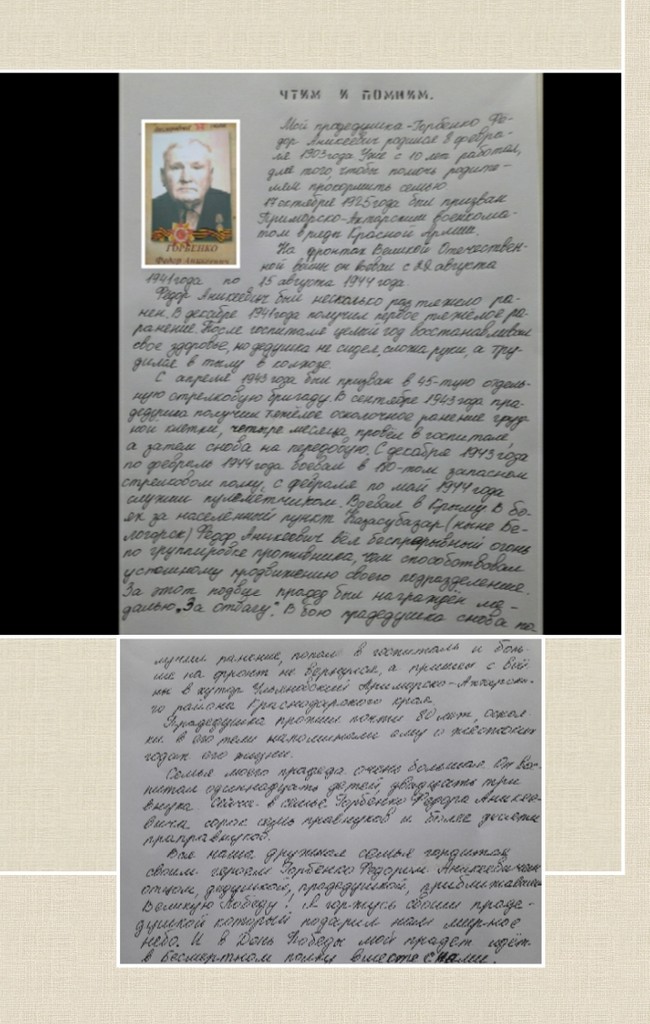 ЧТИМ И ПОМНИМ.
Мой прадедушка - Горбенко Фе-
дор Аникеевич родился 8 февра-
ля 1903 года. Уже с 10 лет работал,
для того, чтобы помочь родите-
лям прокормить семью.
17 октября 1925 года был призван
Приморско-Ахтарским военкома-
том в ряды Красной Армии.
На фронтах Великой Отечествен-
ной войны он воевал с 22 августа
1941 года по 15 августа 1944 года.
Федор Аникеевич был несколько раз тяжело ра-
нен. В декабре 1941 года получил первое тяжёлое ра-
ранение. После госпиталя целый год восстанавливал
свое здоровье, но дедушка не сидел сложа руки, а тру-
дился в тылу в колхозе.
С апреля 1943 года был призван в 45-тую отдель-
ную стрелковую бригаду. В сентябре 1943 года пра-
дедушка получил тяжёлое осколочное ранение груд-
ной клетки, четыре месяца провёл в госпитале,
а затем снова на передовую. С декабря 1943 года
по февраль 1944 года воевал в 180-том запасном
стрелковом полку, с февраля по май 1944 года
служил пулемётчиком. Воевал в Крыму. В бо-
ях за населённый пункт Карасубазар (ныне Бе-
логорск) Федор Аникеевич вел беспрерывный огонь
по группировке противника, чем способствовал
успешному продвижению своего подразделения.
За этот подвиг прадед был награждён ме-
далью „За отвагу". В бою прадедушка снова по-
лучил ранение, попал в госпиталь и боль-
ше на фронт не вернулся, а пришёл с вой-
ны в хутор Ульяновский Приморско-Ахтарско-
го района Краснодарского края.
Прадедушка прожил почти 80 лет, оскол-
ки в его теле напоминали ему о жестоких
годах его жизни.
Семья моего прадеда очень большая. Он вос-
питал одиннадцать детей, двадцать три
внука. Сейчас в семье Горбенко Федора Аникее-
вича сорок семь правнуков и более десяти
праправнуков.
Вся наша дружная семья гордится
своим героем Горбенко Федором Аникеевичем
отцом, дедушкой, прадедушкой, приближавшим
Великую Победу! Я горжусь своим праде-
душкой который подарил нам мирное
небо. И в День Победы мой прадед идёт
в бессмертном полку вместе с нами.
ГОРБЕНКО
Федор Аникеевич